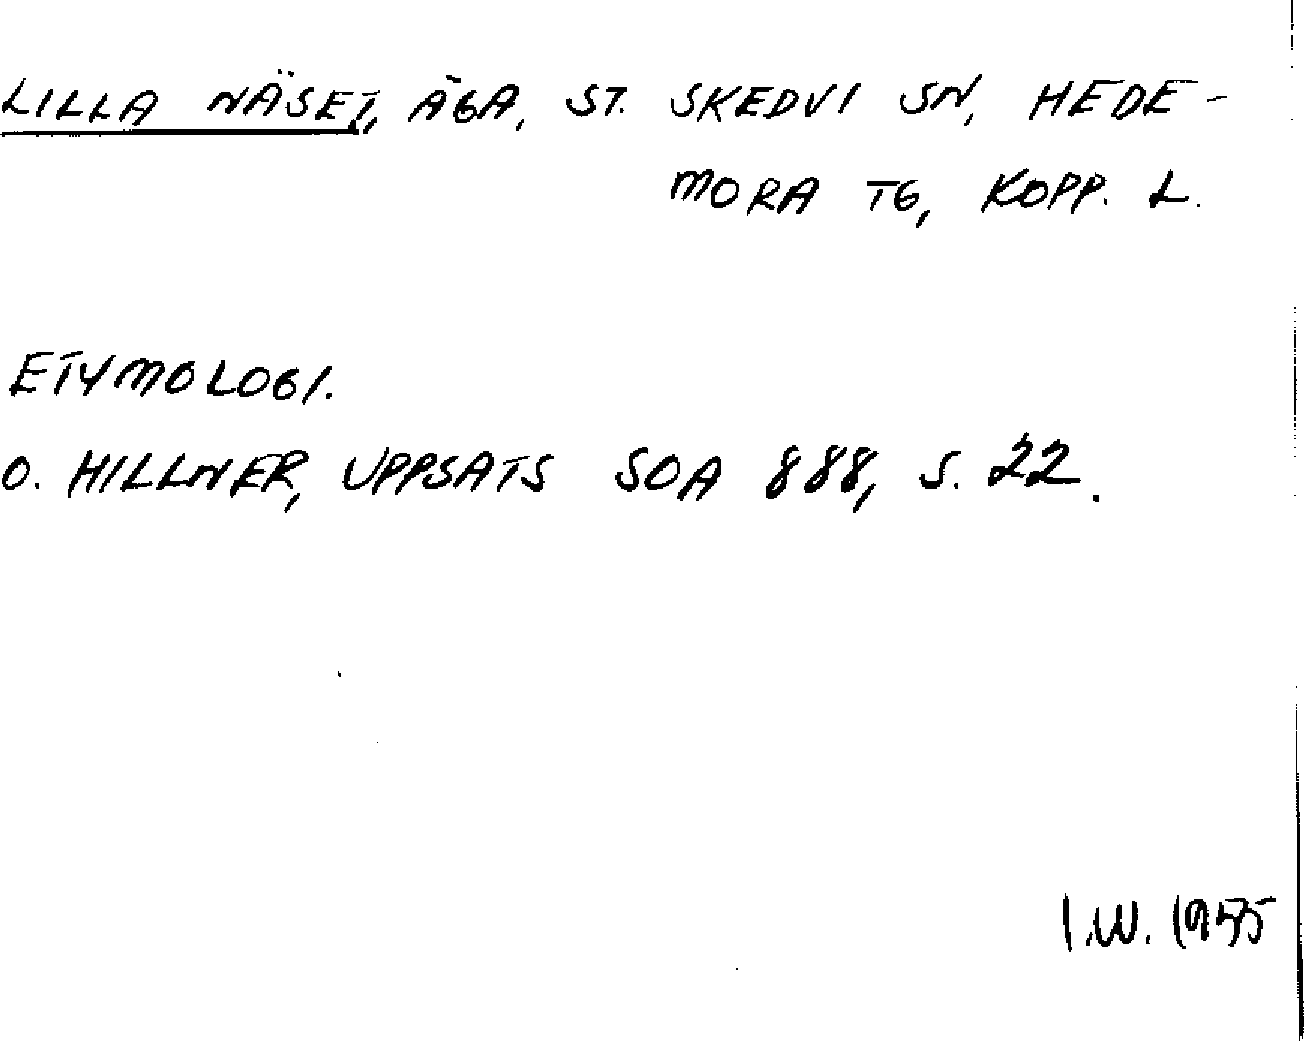 LILLA NÄSET, ÄGA, ST. SKEDVI SN, HEDE-
MORA TG, KOPP. L.
ETYMOLOGI.
O. HILLNER, UPPSATS SOA 888, S. 22.
I.W. 1955